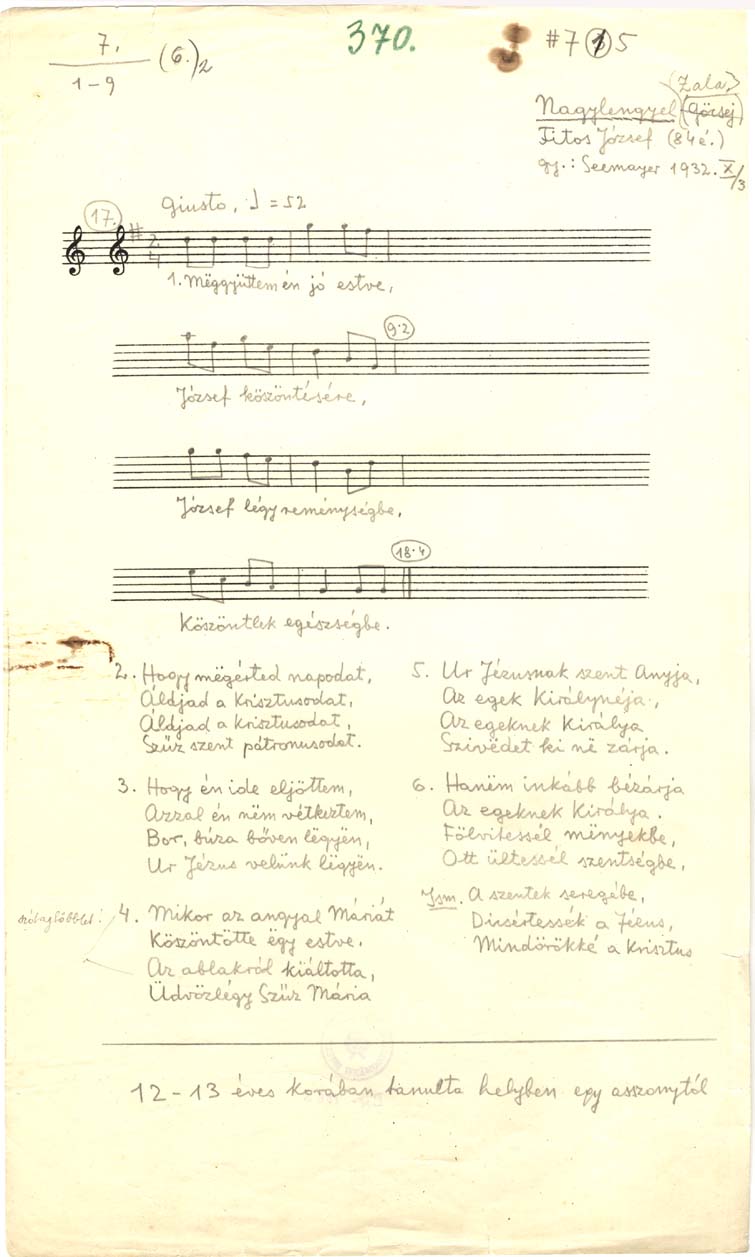 7.
1-9
(6.)2
370.
#7 ① 5
(Zala.)
Nagylengyel (Göcsej)
Fitos József (84 é.)
gy.: Seemayer 1932. X/3
17.
Giusto, ♩ = 52
2
4
1. Mëggyüttem én jó estve,
9·2
József köszöntésére,
József légy reménységbe,
18·4
Köszöntlek egészségbe.
2. Hogy mëgérted napodat,
Áldjad a Krisztusodat,
Áldjad a Krisztusodat,
Szűz szent pátronusodat.
3. Hogy én ide eljöttem,
Azzal én nëm vétkeztem,
Bor, búza bőven lëgyën,
Ur Jézus velünk lëgyën.
szótagtöbblet!
4. Mikor az angyal Máriát
Köszöntötte ëgy estve.
Az ablakról kiáltotta,
Üdvözlégy Szűz Mária
5. Ur Jézusnak szent Anyja,
Az egek Királynéja.,
Az egeknek Királya
Szivédet ki në zárja.
6. Hanëm inkább bézárja
Az egeknek Királya.
Fölvitessél mënyekbe,
Ott ültessél szentségbe,
Ism. A szentek seregébe,
Dicsértessék a Jézus,
Mindörökké a Krisztus
12-13 éves korában tanulta helyben egy asszonytól